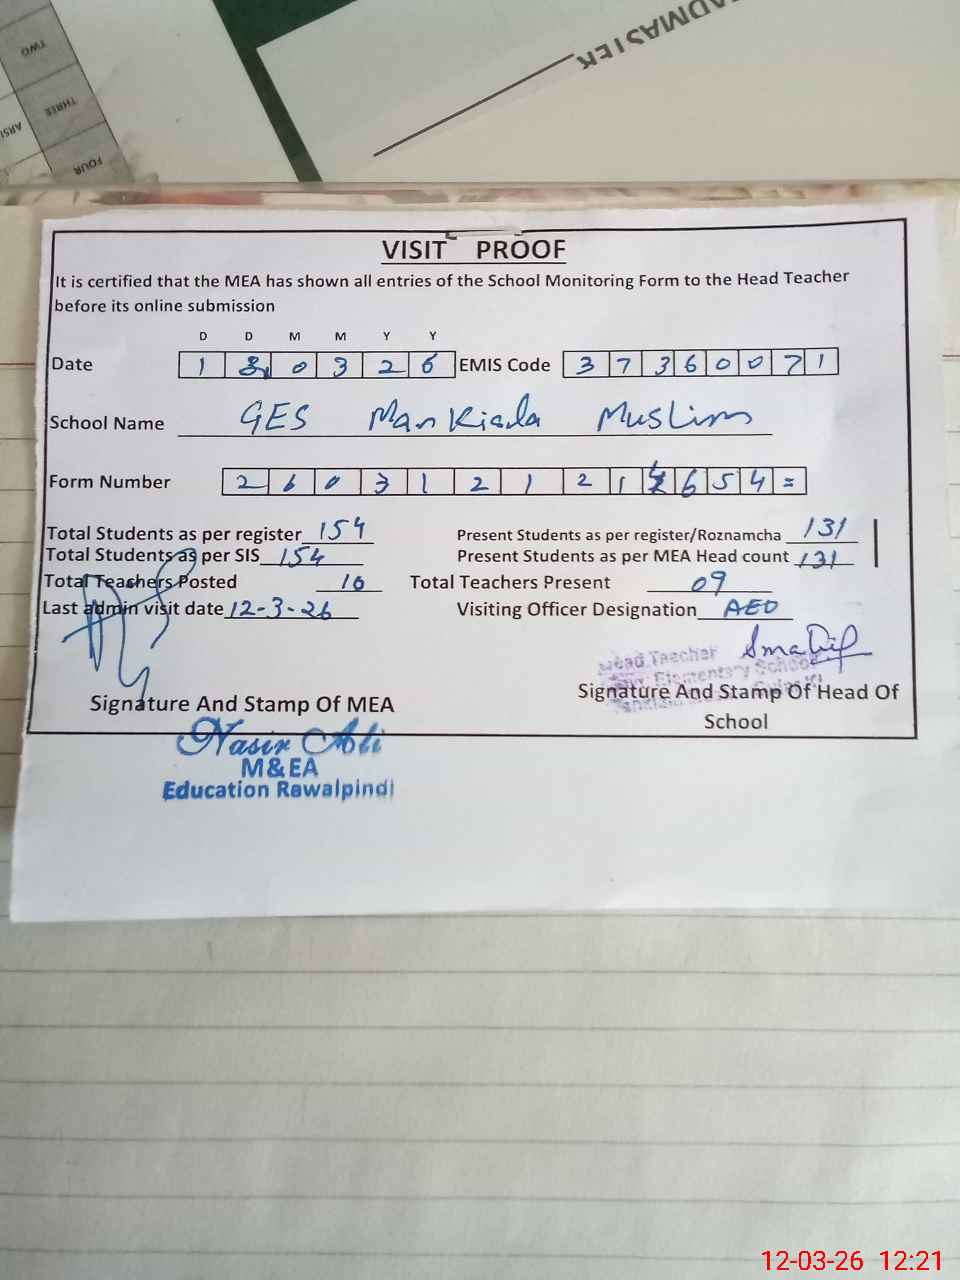 HEADMASTER
TWO
THREE
FOUR
VISIT PROOF
It is certified that the MEA has shown all entries of the School Monitoring Form to the Head Teacher
before its online submission
D D M M Y Y
Date 1 0 3 2 6 EMIS Code 3 7 3 6 0 0 7 1
School Name GES Mankiala Muslim
Form Number 2 6 0 3 1 2 1 2 1 4 6 5 4 =
Total Students as per register 154 Present Students as per register/Roznamcha 131
Total Students as per SIS 154 Present Students as per MEA Head count 131
Total Teachers Posted 10 Total Teachers Present 09
Last admin visit date 12-3-26 Visiting Officer Designation AEO
Head Teacher
Elementary School
Signature And Stamp Of MEA Signature And Stamp Of Head Of
School
Nasir Ali
M&EA
Education Rawalpindi
12-03-26 12:21